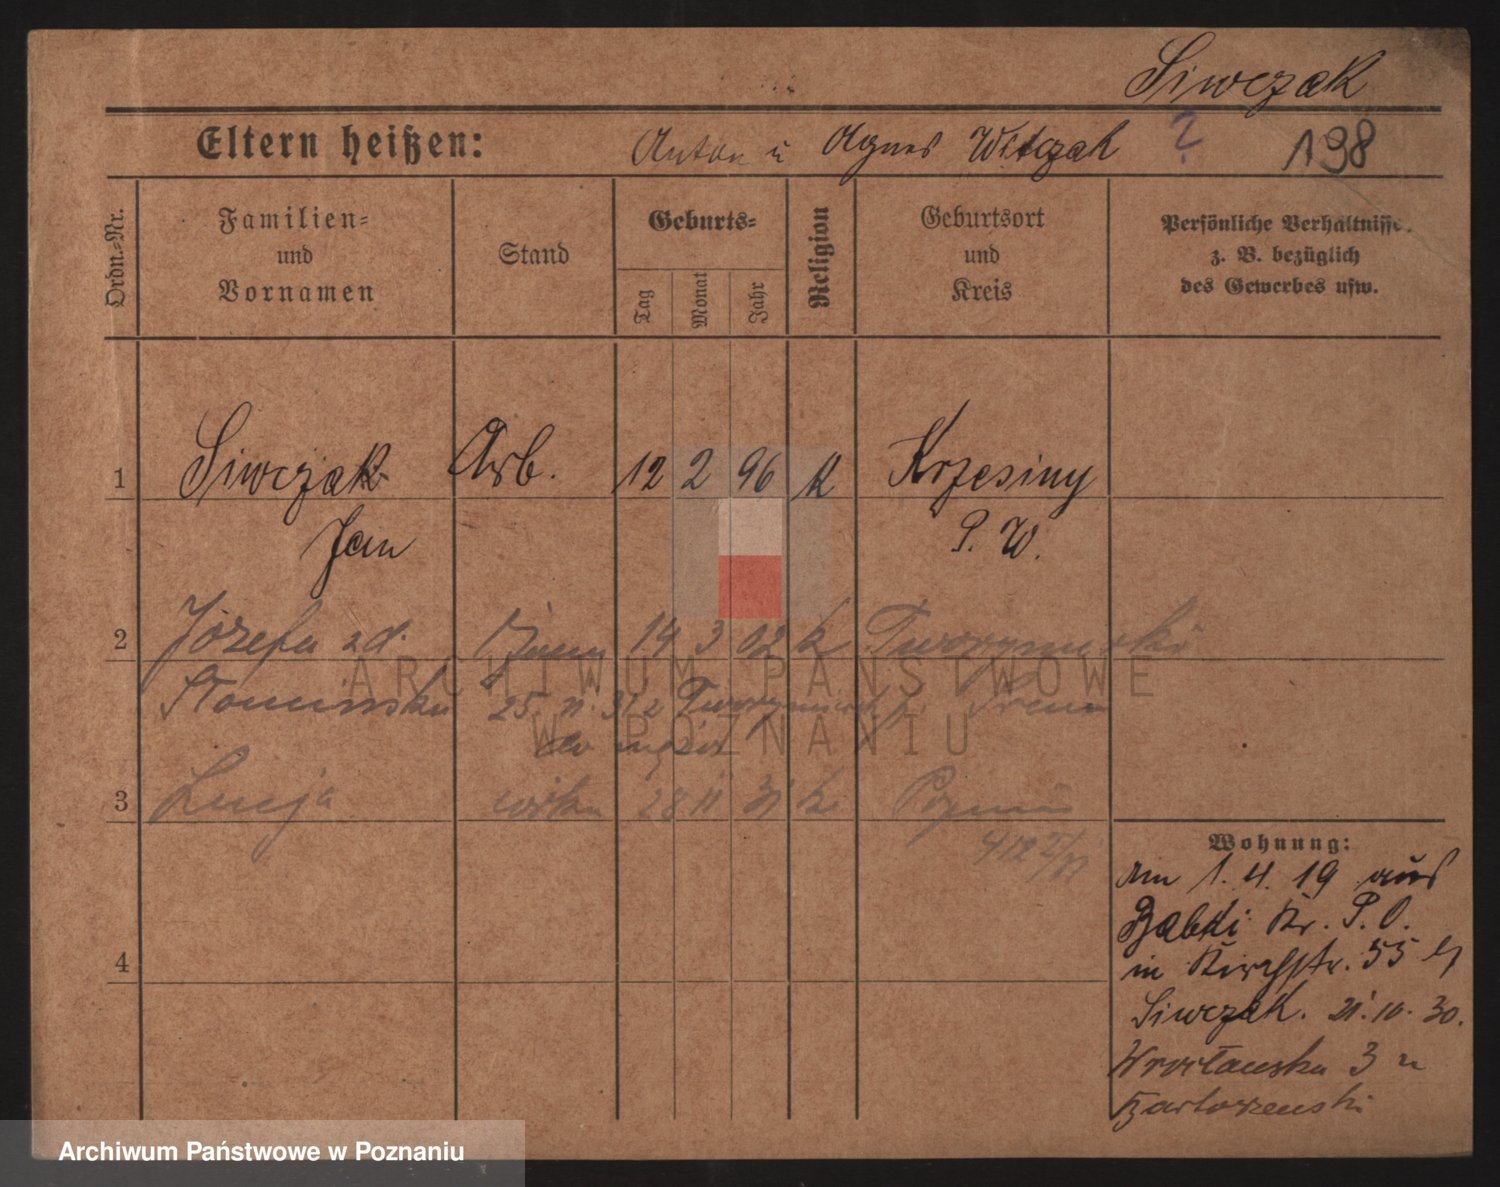 Siwczak
Eltern heißen: Anton u Agnes Witczak ? 198
Ordn.-Nr.
Familien-
und
Vornamen
Stand
Geburts-
Tag
Monat
Jahr
Religion
Geburtsort
und
Kreis
Persönliche Verhältnisse
z. B. bezüglich
des Gewerbes usw.
1 Siwczak Arb. 12 2 96 k Krzesiny
Jan P. W.
2 Józefa zd. 14 3 02 k
Słomińska 25. 11. 31 z
do męża
3 Łucja córka 28 11 31 k Poznań
4
Wohnung:
Am 1. 4. 19 aus
Babki Kr. P. O.
in Kirchstr. 55 b/
Siwczak. 21. 10. 30.
Wrocławska 3 u
ARCHIWUM PAŃSTWOWE
W POZNANIU
Archiwum Państwowe w Poznaniu